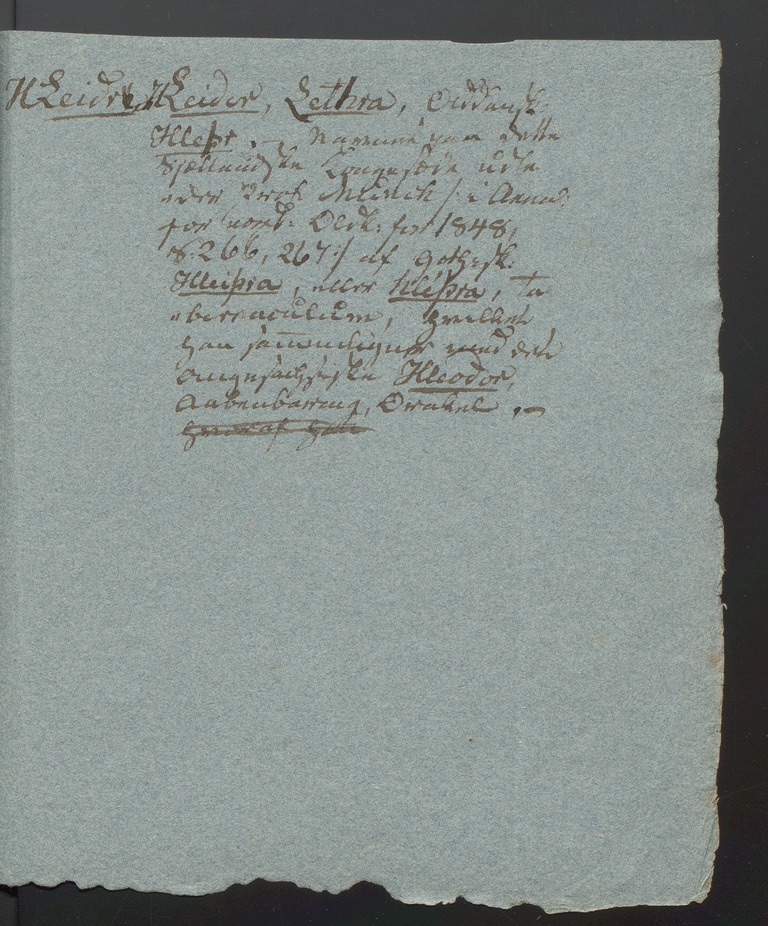 HLeidr, HLeidor, Lethra, Olddansk
Hleþr. – Navnet paa dette
Sjællandske Kongesæde udle
eder Prof. Munch /: i Annal:
for nord: Oldk: for 1848,
S. 266, 267 :/ af gothisk:
Hleiþra, eller hléþra, ta
bernaculum, hvilket
han sammenligner med det
angelsachsiske Hleodor,
Aabenbaring, Orakel, –
hvoraf han